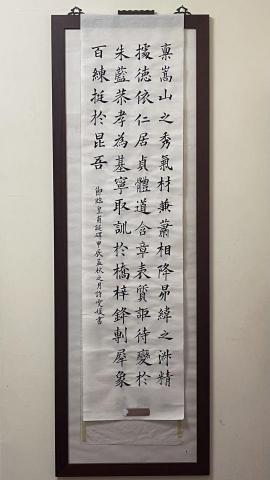 稟嵩山之秀氣材兼蕭相降昴緯之淋精
據德依仁居貞體道含章表質詎待變於
朱藍恭孝為基寧取訓於橋梓鋒剸犀象
百練挺於昆吾
節臨皇甫誕碑甲辰孟秋之月許雯媛書